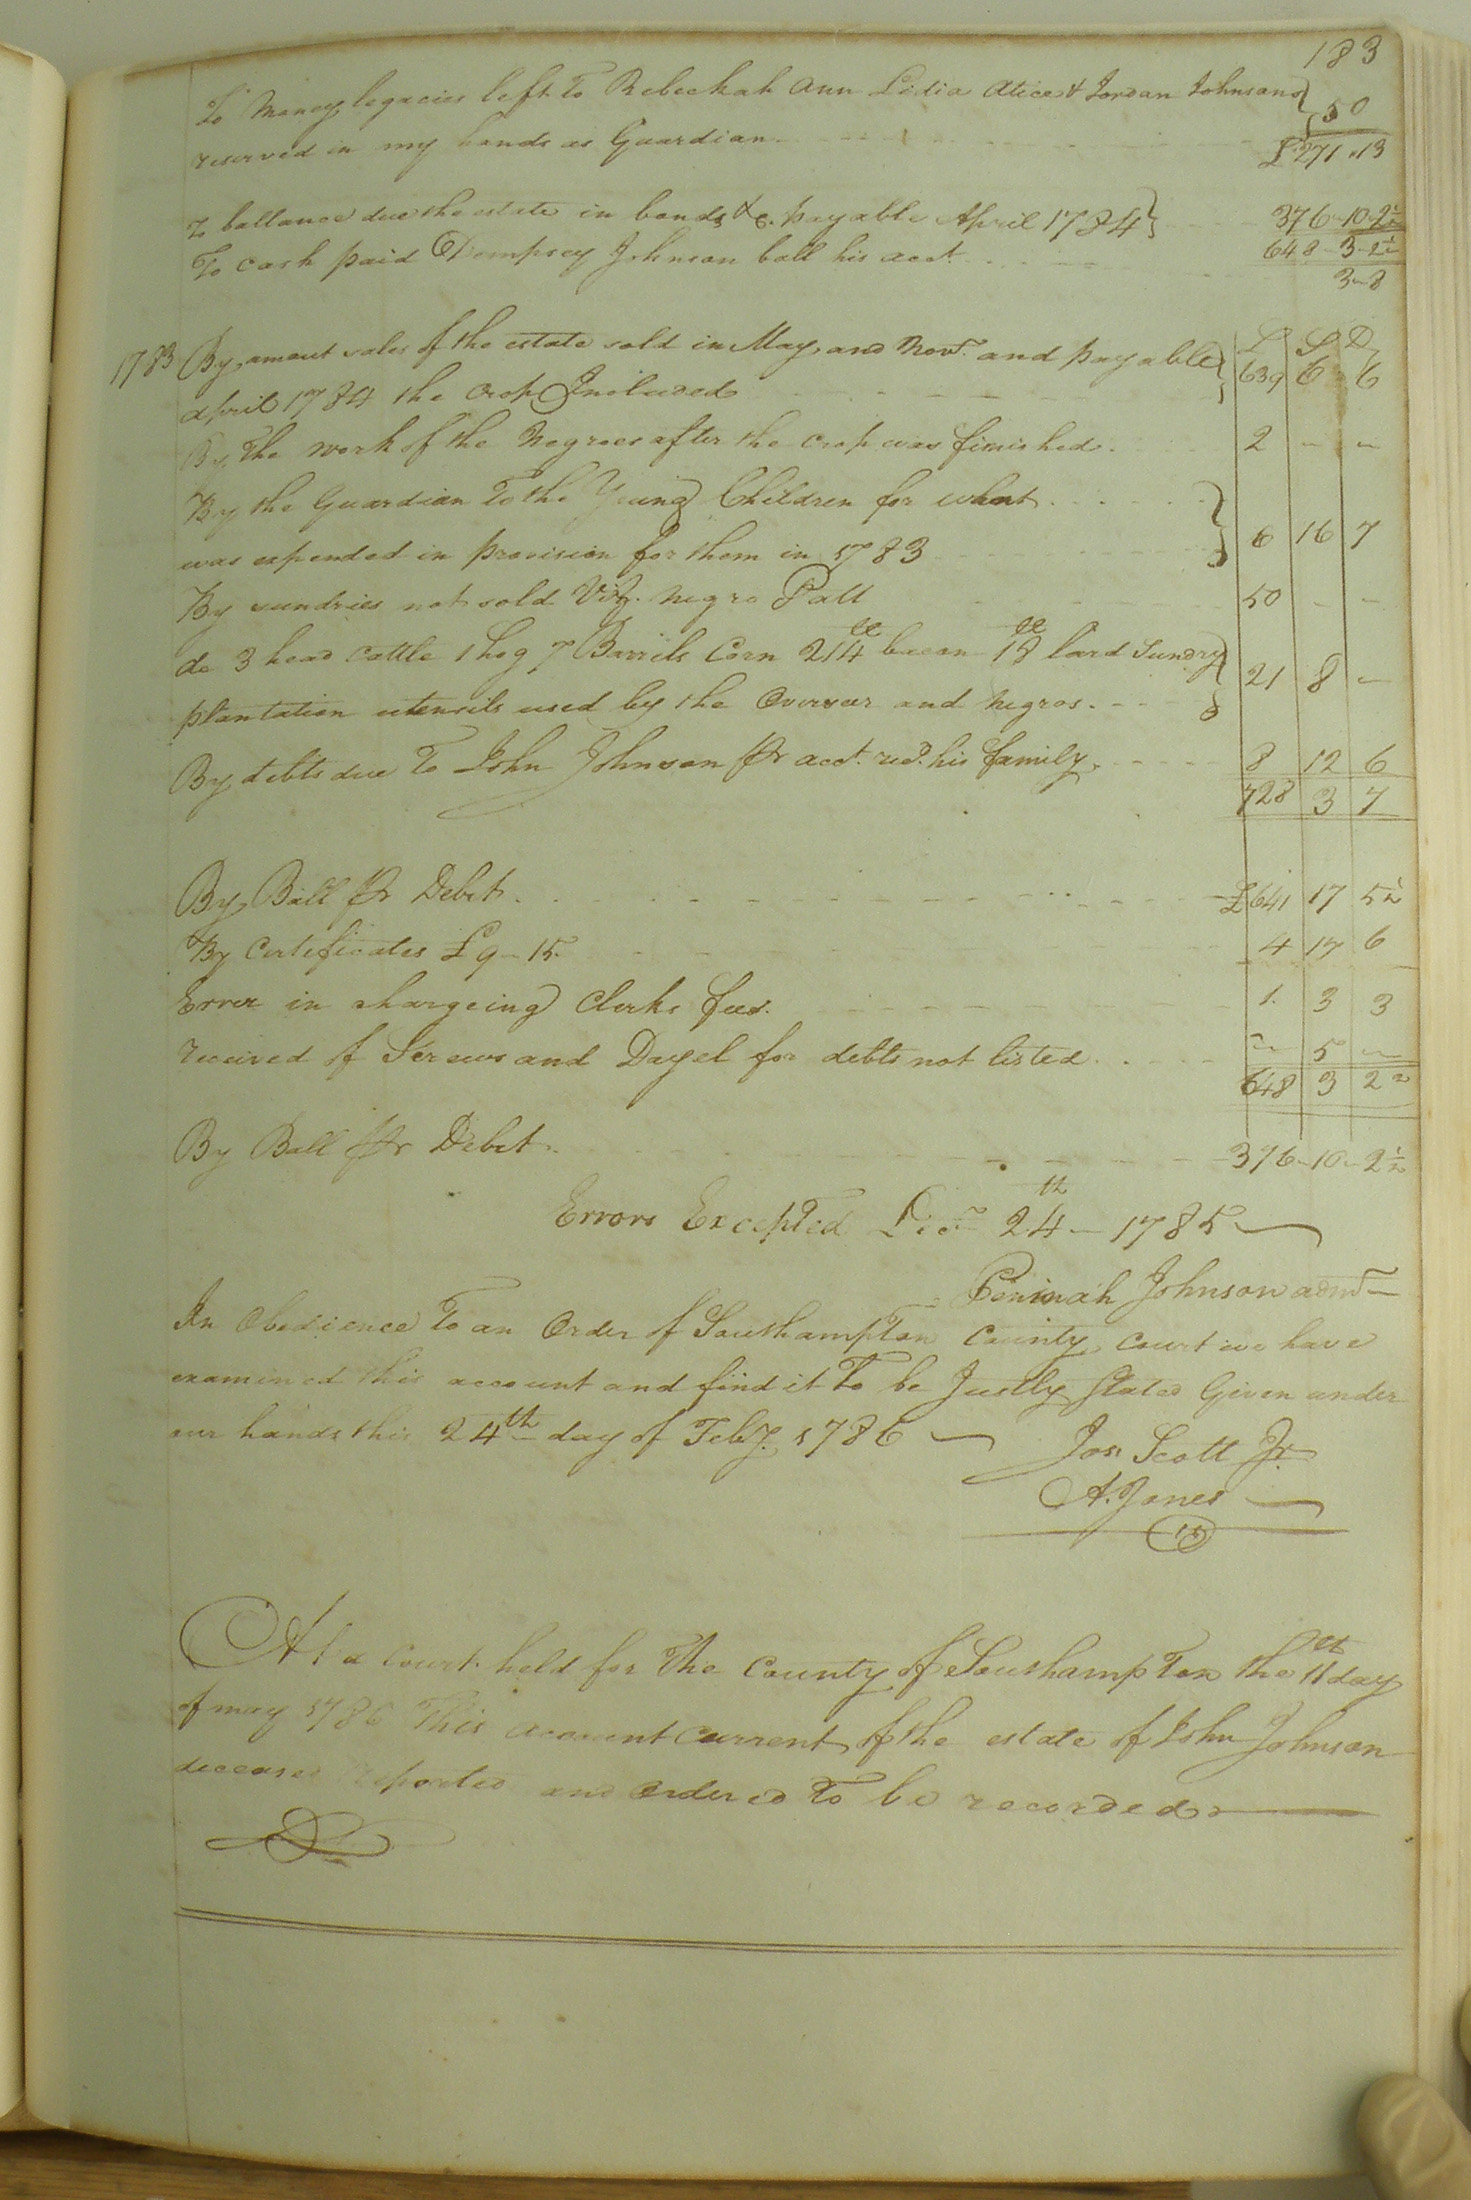 183
To Money legacies left To Rebeckah Ann Lidia Alice & Jordan Johnsons } 50
reserved in my hands as Guardian £271.13
To ballance due the estate in bonds &c. payable April 1784 } 376-10-2½
648-3-2½
To cash paid Dempsey Johnson ball his acct. 3-8
1783 By amout sales of the estate sold in May, and Novr. and payable } £ S D
april 1784 the Crop Included 639 6 6
By The work of the Negroes after the crop was finished. 2 - -
By the Guardian To the Young Children for what
was expended in provision for them in 1783 } 6 16 7
By sundries not sold Viz. negro Patt 50 - -
do 3 head Cattle 1 hog 7 Barrils Corn 214 ll bacon 18 ll lard Sundry
plantation utensils used by the Overseer and negros. } 21 8 -
By debts due To John Johnson pr acct. red. his family. 8 12 6
728 3 7
By Ball pr Debt. £641 17 5½
By Certificates £9-15. 4 17 6
Error in chargeing Clerks fees. 1. 3 3
received of Screws and Dayel for debts not listed - 5 -
648 3 2½
By Ball pr Debt. 376-10-2½
Errors Excepted Decr 24th - 1785
Peninah Johnson admr
In Obedience To an Order of Southampton County Court we have
examined this account and find it To be Justly Stated Given under
our hands this 24th day of Feby. 1786
Jos. Scott Jr.
A. Jones
At a Court held for The County of Southampton the 11th day
of may 1786 This account current of the estate of John Johnson
deceased Reported and Ordered To be recorded